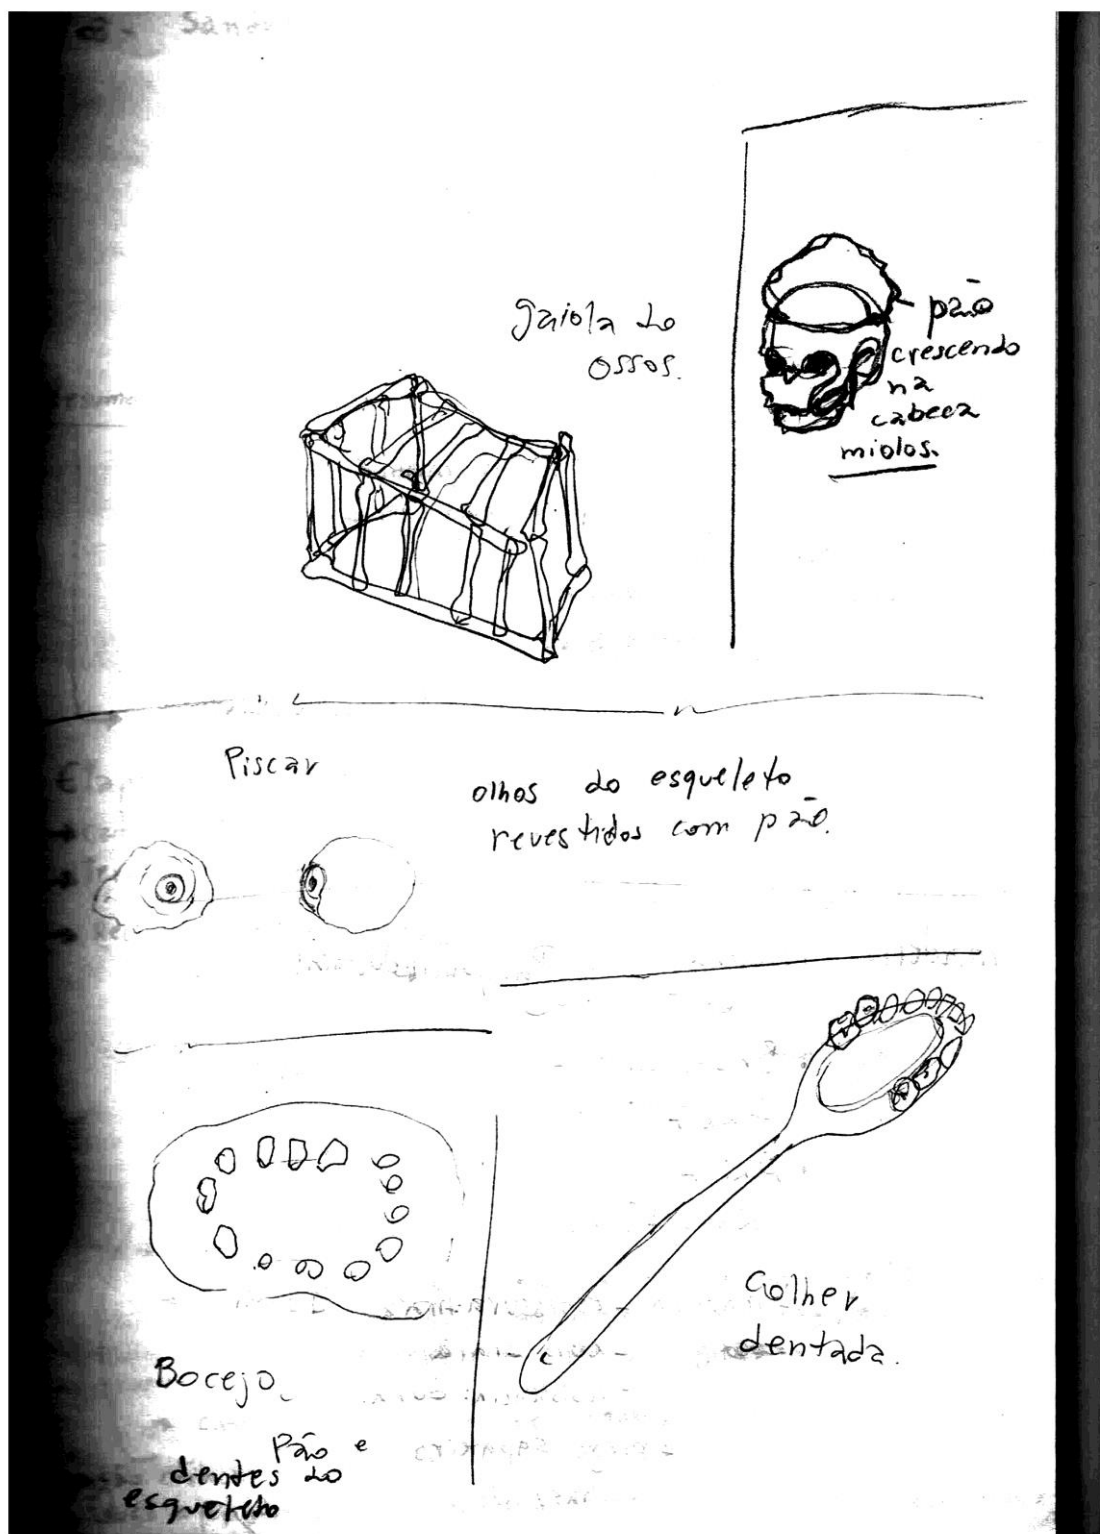 gaiola do
ossos.
pão
crescendo
na
cabeca
miolos.
Piscar
olhos do esqueleto
revestidos com pão.
Colher
dentada.
Bocejo
Pão e
dentes do
esqueleto